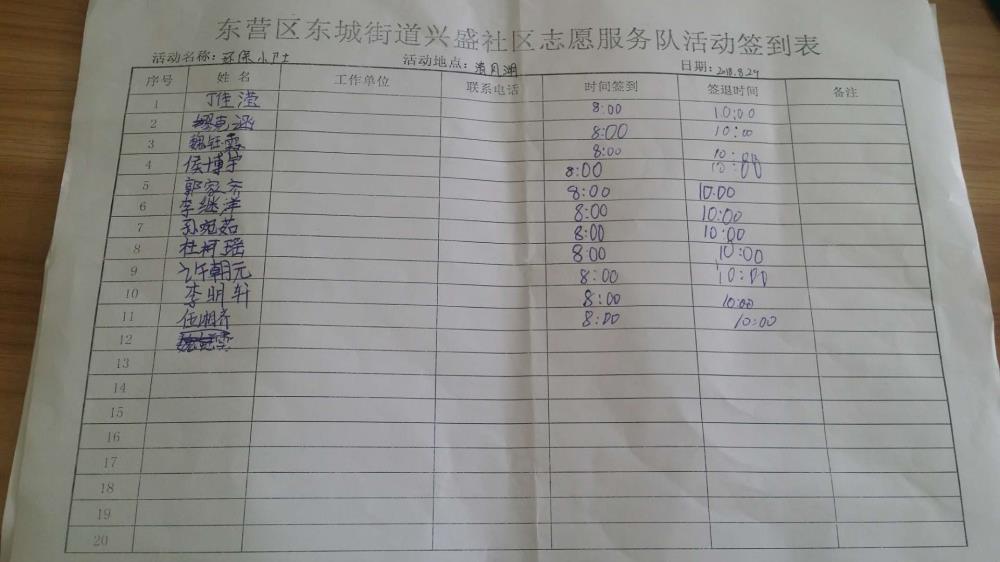 东营区东城街道兴盛社区志愿服务队活动签到表
活动名称：环保小卫士 活动地点：清风湖 日期：2018.8.29
序号 姓名 工作单位 联系电话 时间签到 签退时间 备注
1 丁佳滢 8:00 10:00
2 克涵 8:00 10:00
3 魏钰雯 8:00 10:
4 侯博宇 8:00 10:00
5 郭家齐 8:00 10:00
6 李继洋 8:00 10:00
7 孙宛茹 8:00 10:00
8 杜柯瑶 8:00 10:00
9 许朝元 8:00 10:00
10 李明轩 8:00 10:00
11 任湘齐 8:00 10:00
12
13
14
15
16
17
18
19
20